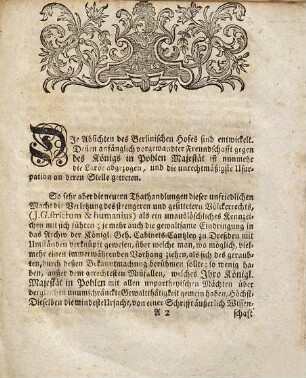 Die Absichten des Berlinischen Hofes sind entwickelt.
Dessen anfänglich vorgewandter Freundschafft gegen
des Königs in Pohlen Majestät ist nunmehr
die Larve abgezogen, und die unrechtmäßigste Usur-
pation an deren Stelle getreten.
So sehr aber die neuern Thathandlungen dieser unfriedlichen
Macht die Verletzung des strengern und gesittetern Völckerrechts,
(J. G. strictum & humanius) als ein unauslöschliches Kennzei-
chen mit sich führen; je mehr auch die gewaltsame Eindringung in
das Archiv der Königl. Geh. Cabinets-Cantzley zu Dreßden mit
Umständen verknüpft gewesen, über welche man, wo möglich, viel-
mehr einen immerwährenden Vorhang ziehen, als sich des gerau-
bten, durch dessen Bekanntmachung berühmen sollte; so wenig ha-
ben, ausser dem gerechtesten Mißfallen, welches Ihro Königl.
Majestät in Pohlen mit allen unpartheyischen Mächten über
dergleichen unumschränckte Gewaltthätigkeit gemein haben, Höchst-
Dieselben die mindeste Ursache, von einer Schrifft äußerlich Wissen-
A 2 schaft